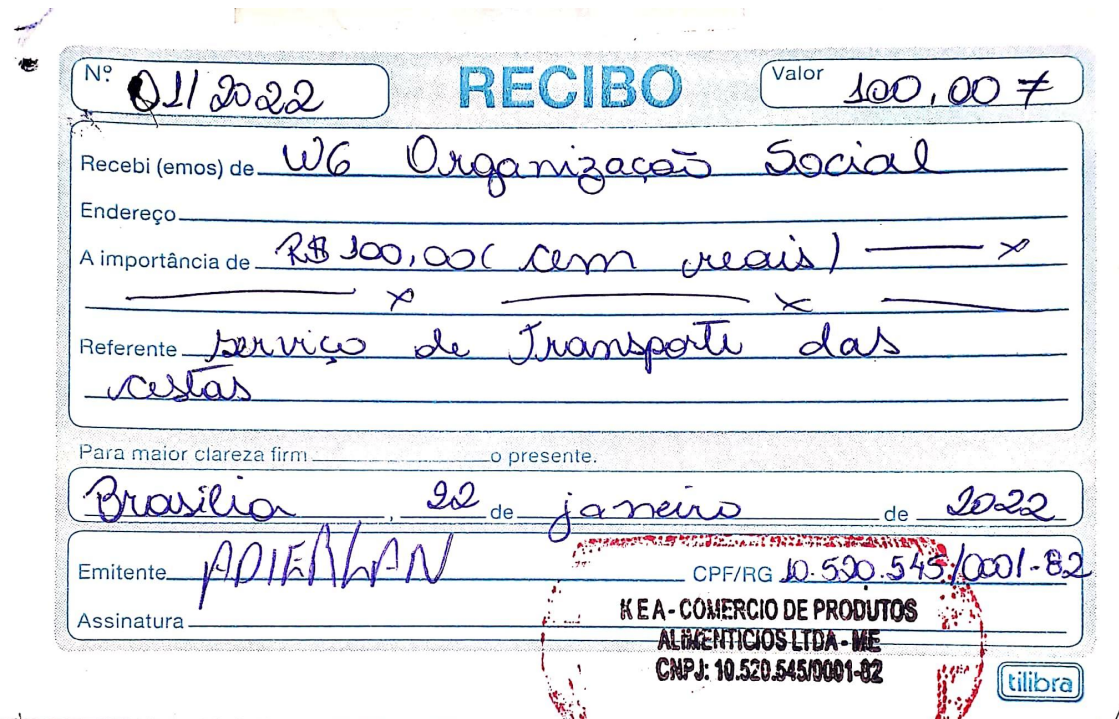 Nº 01/2022 RECIBO Valor 100,00 ≠
Recebi (emos) de W6 Organização Social
Endereço
A importância de R$ 100,00 ( cem reais) x
x x
Referente serviço de Transporte das
cestas
Para maior clareza firm o presente.
Brasilia, 22 de janeiro de 2022
Emitente ADIERLAN CPF/RG 10.520.545/0001-82
Assinatura
K E A - COMERCIO DE PRODUTOS
ALIMENTICIOS LTDA - ME
CNPJ: 10.520.545/0001-82
tilibra